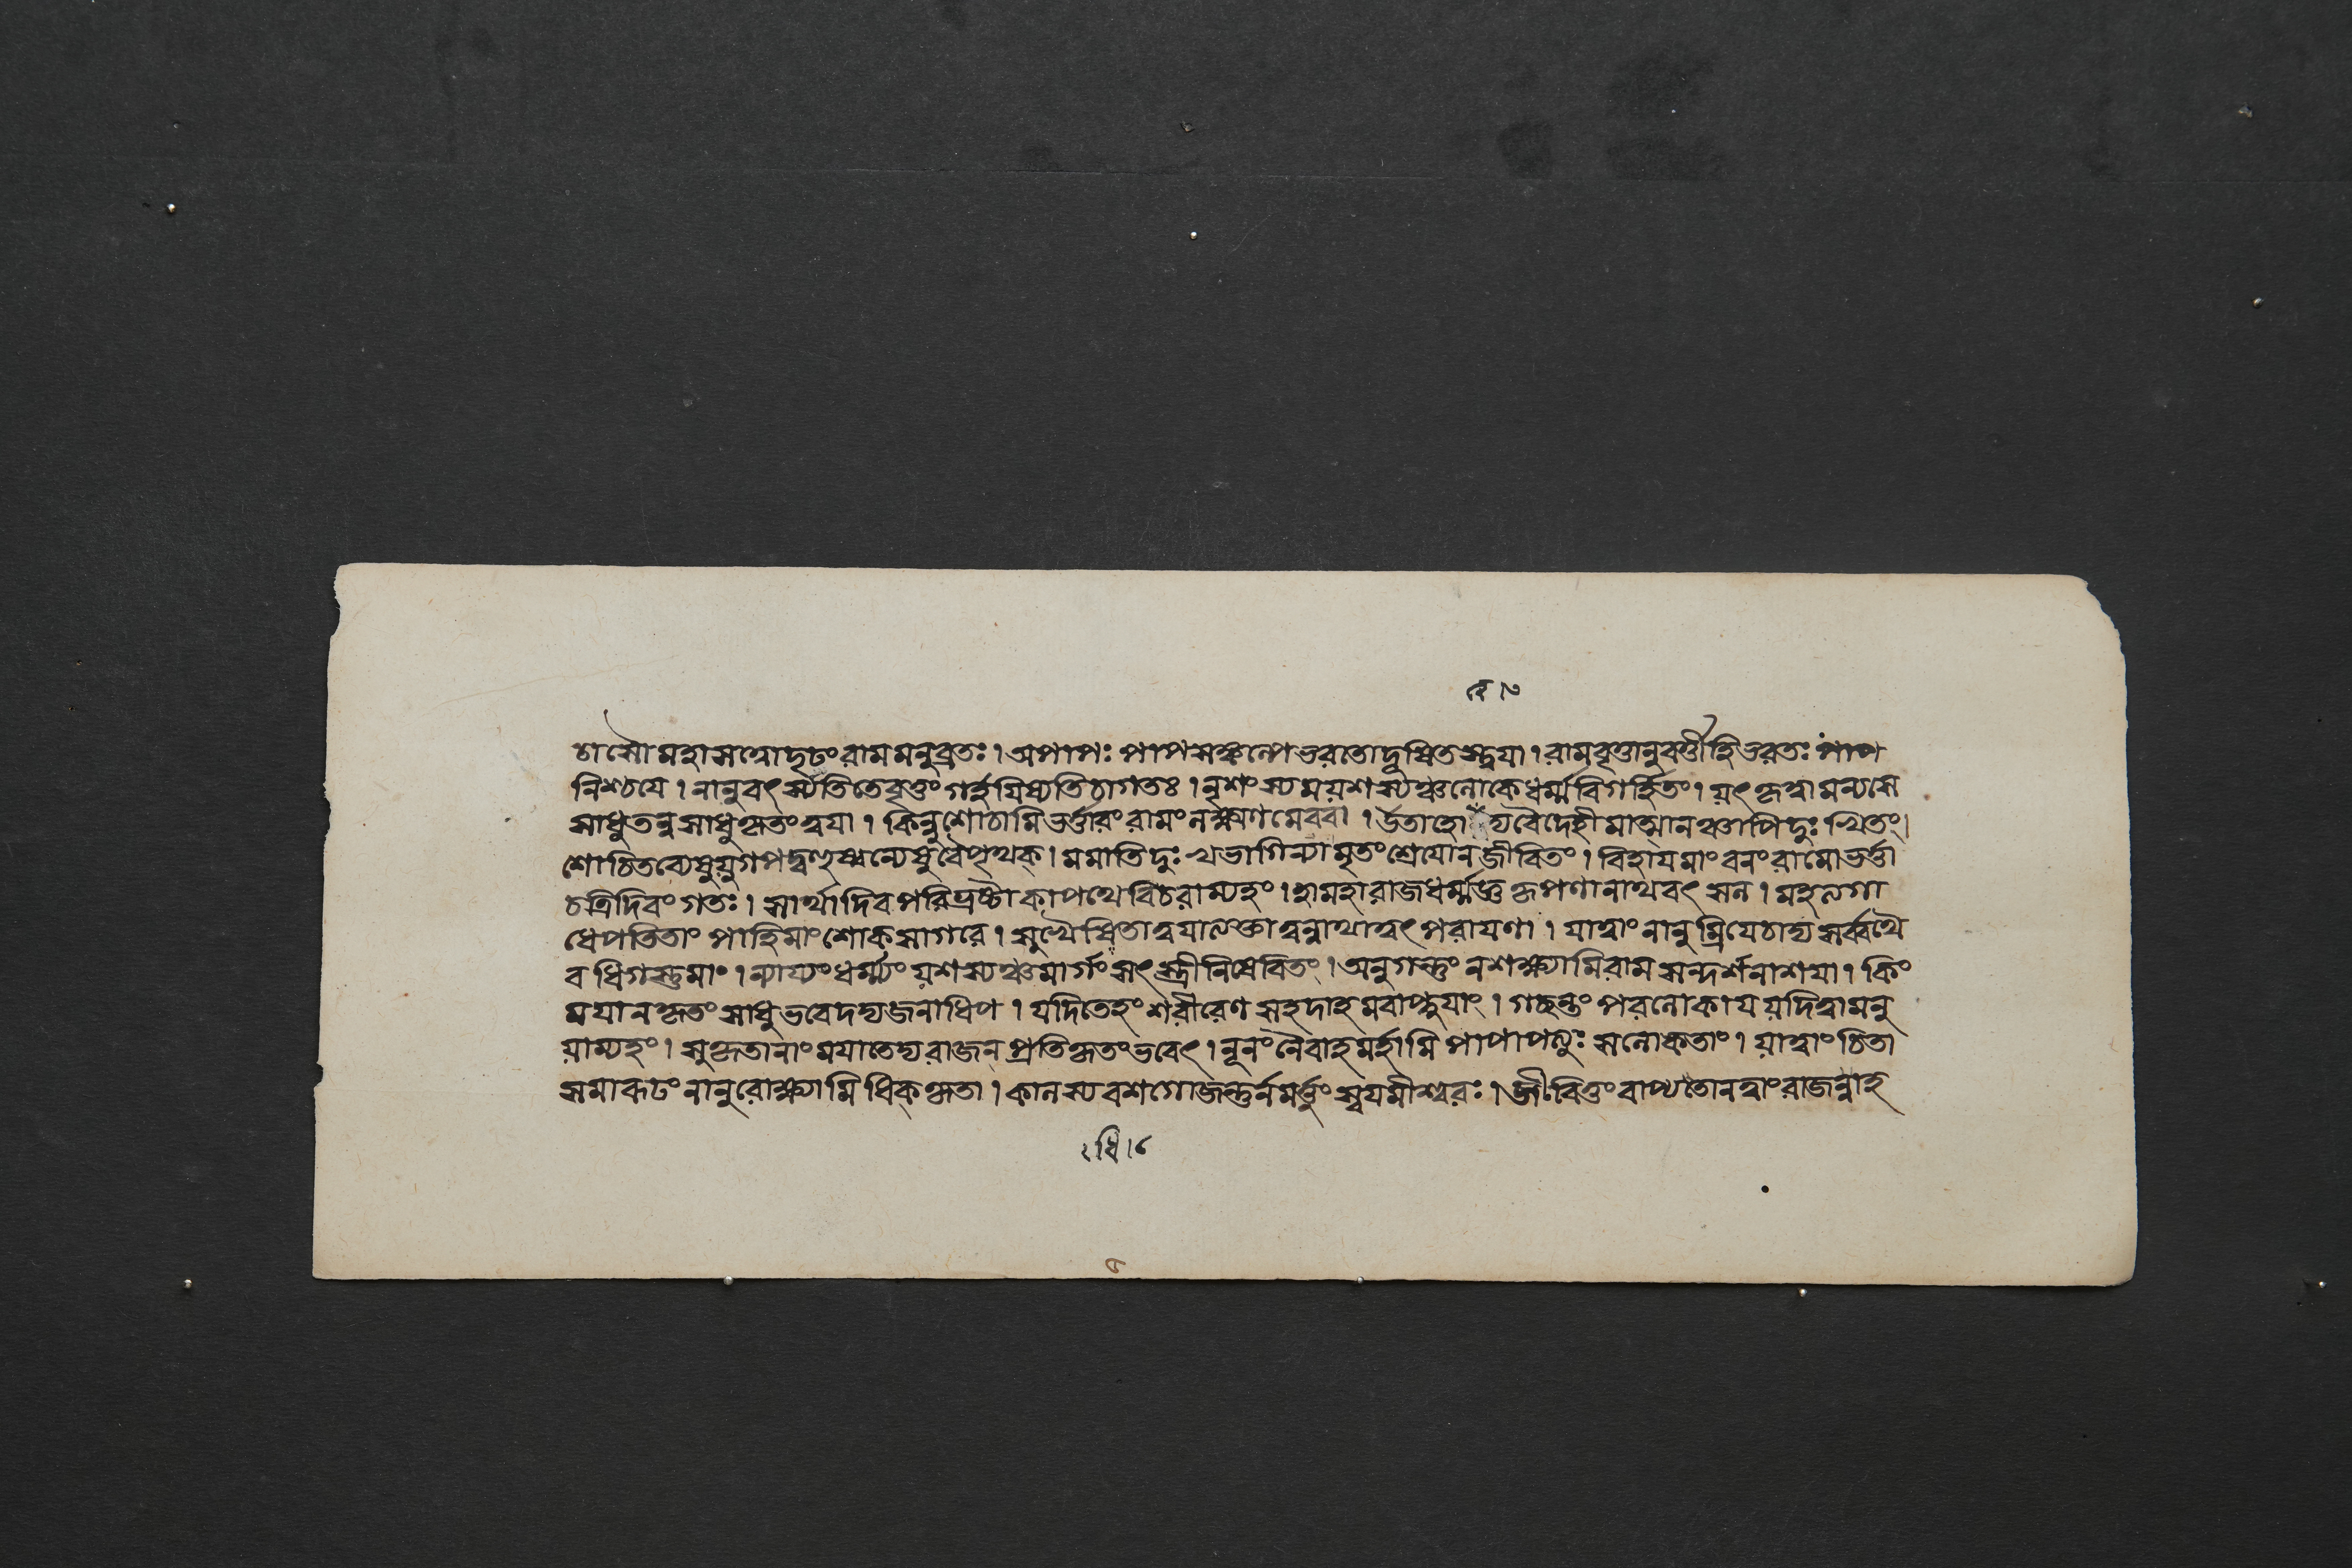 চাসৌ মহাসত্ত্বো দৃঢং রামমনুব্রতঃ । অপাপঃ পাপসঙ্কল্পে ভরতো দূষিতস্ত্বযা । রামবৃত্তানুবর্ত্তী হি ভরতঃ পাপ
নিশ্চযে । নানুবর্ৎস্যতি তে বৃত্তং গর্হয়িষ্যতি চাগতঃ । নৃশংস্যময়শস্যঞ্চ লোকে ধর্ম্মবিগর্হিতং । য়ৎ কৃত্বা মন্যসে
সাধু তন্ন সাধু কৃতং ত্বযা । কিন্নু শোচামি ভর্ত্তারং রামং লক্ষ্মণমেব বা । উতাহো দ্য বৈদেহীমাত্মানঞ্চাপি দুঃখিতং ।
শোচিতব্যেষু য়ুগপদ্বহুষ্বন্যেষু বৈ পৃথক্ । মমাতিদুঃখভাগিন্যা মৃতং শ্রেযো ন জীবিতং । বিহায মাং বনং রামো ভর্ত্তা
চ ত্রিদিবং গতঃ । সার্থাদিব পরিভ্রষ্টা কাপথে বিচরাম্যহং । হা মহারাজ ধর্ম্মজ্ঞ কৃপণানাথবৎসল । মহত্যগা
ধে পতিতাং পাহি মাং শোকসাগরে । সুখৈধিতা ত্বযা ত্যক্তা ত্বন্নাথা ত্বৎপরাযণা । যা ত্বাং নানুম্রিযে চাদ্য সর্ব্বথৈ
ব ধিগস্তু মাং । ন্যায্যং ধর্ম্ম্যং য়শস্যঞ্চ মার্গং সৎস্ত্রীনিষেবিতং । অনুগন্তুং ন শক্ষ্যামি রামসন্দর্শনাশযা । কিং
ময়া ন কৃতং সাধু ভবেদদ্য জনাধিপ । যদি তেহং শরীরেণ সহ দাহমবাপ্নুযাং । গচ্ছন্তং পরলোকায য়দি ত্বামনু
য়াম্যহং । সুকৃতানাং ময়া তেদ্য রাজন প্রতিকৃতং ভবেৎ । নূনং নৈবাহমর্হামি পাপা পত্যুঃ সলোকতাং । য়া ত্বাং চিতা
সমারূঢং নানুরোক্ষ্যামি ধিক্কৃতা । কালস্য বশগো জন্তুর্ন মর্ত্তুং স্বযমীশ্বরঃ । জীবিতুং বাপ্যতো ন ত্বাং রাজন্নাহ
। ধি । ৮